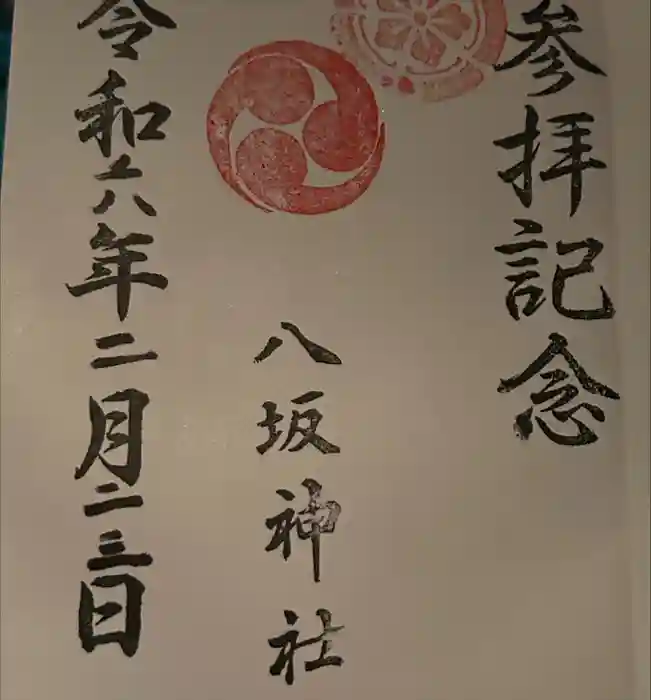 参拝記念
八坂神社
令和六年二月二三日